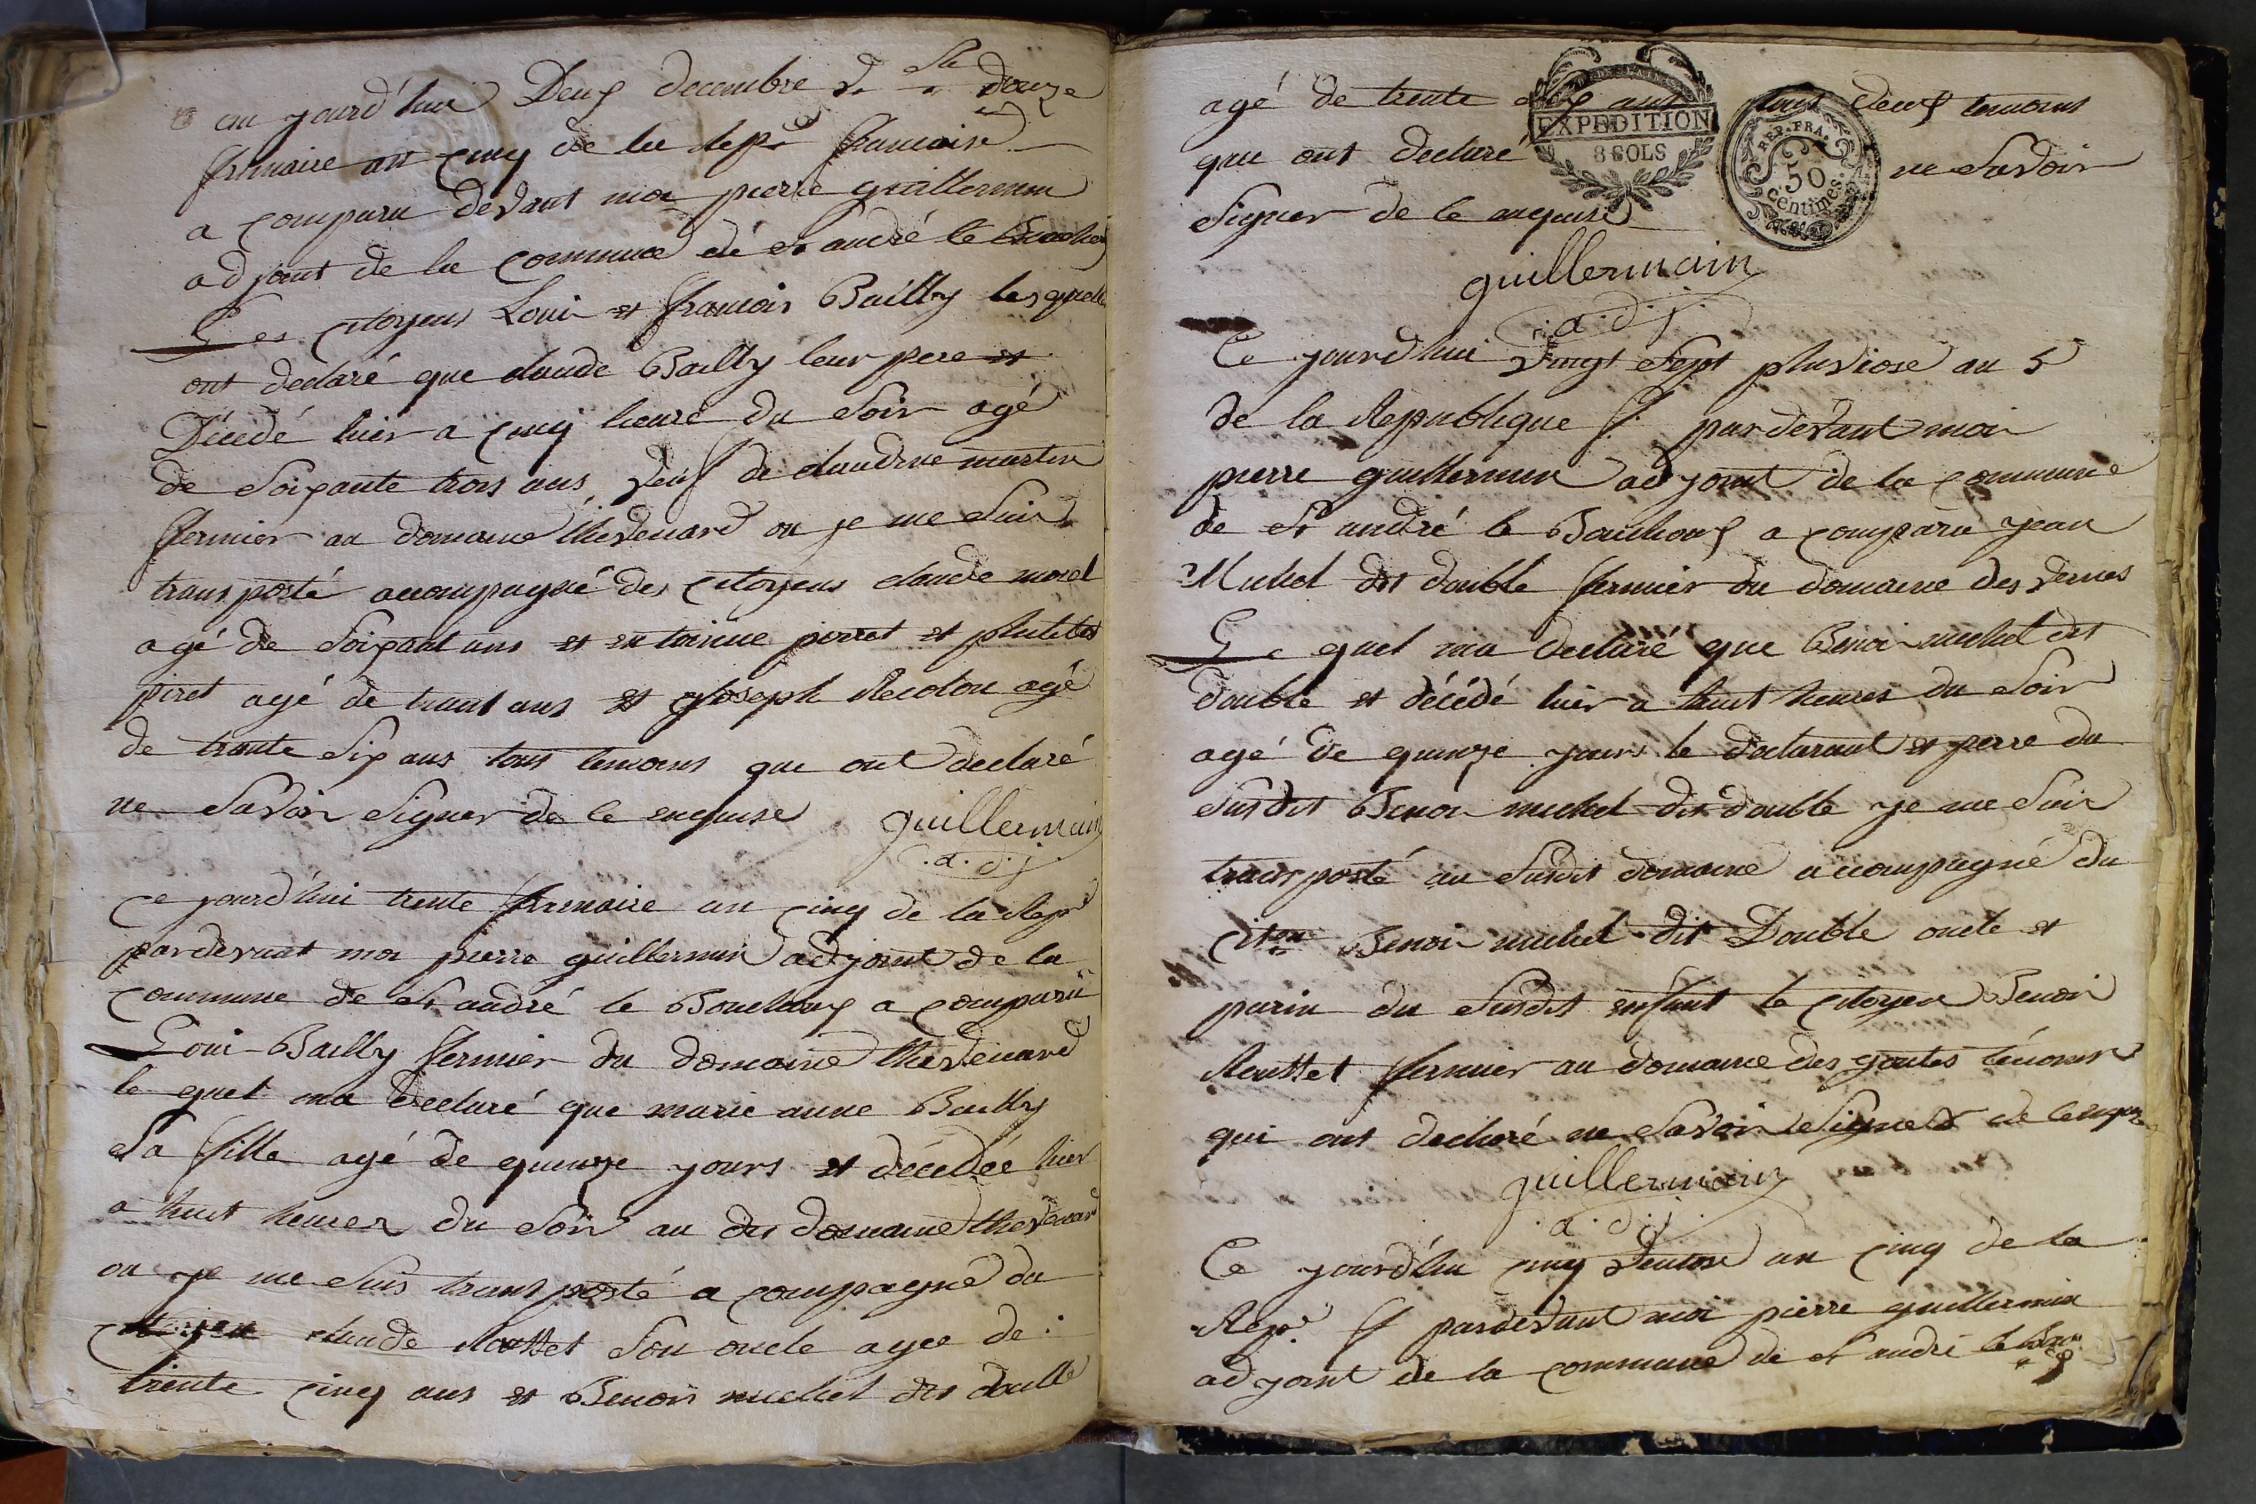 au jourd'hui Deux decembre v. st. douze
frimaire an cinq de la Repu francoise
a comparu devant moi pierre guillermin
adjoint de la commune de st andré le Bouchoux
Les citoyens Loui et francois Bailly lesquelle
ont declaré que claude Bailly leur pere et
Décedé hier a cinq heure du Soir agé
de Soixante trois ans veuf de claudine martin
fermier au domaine thevenard ou je me Suis
transporté accompagné des citoyens claude morel
agé de Soixant ans et entoinne perret et
piret agé de trant ans et joseph Recolon agé
de trante Six ans tous temoins que ont declaré
ne Savoir Signer de ce enquise
guillermain
a.d.j
Ce jourd'hui trente frimaire an cinq de la Repu
pardevant moi pierre guillermin adjoint de la
commune de st andré le Bouchoux a comparu
Loui Bailly fermier du domaine thevenard
le quel ma declaré que marie anne Bailly
Sa fille agé de quinze jours et décédée hier
a huit heures du Soir au dit domaine thevenard
ou je me Suis transporté a compagné du
citoyen claude Rottet Son oncle agee de
trente cinq ans et Benoit michel dit doulle
agé de trente ans tous deux temoins
que ont declaré ne Savoir
Signer de ce enquise
EXPEDITION
8 SOLS
REP. FRA.
50
centimes.
guillermain
a.d.j.
Ce jourd'hui vingt Sept pluviose an 5
de la Republique f. pardevant moi
pierre guillermin adjoint de la commune
de st andré le Bouchoux a comparu jean
Michel dit double fermier du domaine des vernes
Le quel ma declaré que Benoi michel dit
double et décédé hier a huit heures du Soir
agé de quinze jours le declarant et perre du
Susdit Benoi michel dit double je me Suis
transporté au Susdit domaine accompagné du
citoen Benoi michel dit Double oncle et
parin du Susdit enfant le citoyen Benoi
Rottet fermier au domaine des goutes témoins
qui ont declaré ne Savoir Signer de ce enquise
guillermain
a.d.j.
Ce jourd'hui cinq ventose an cinq de la
Repu f pardevant moi pierre guillermin
adjoint de la commune de st andré le Boux